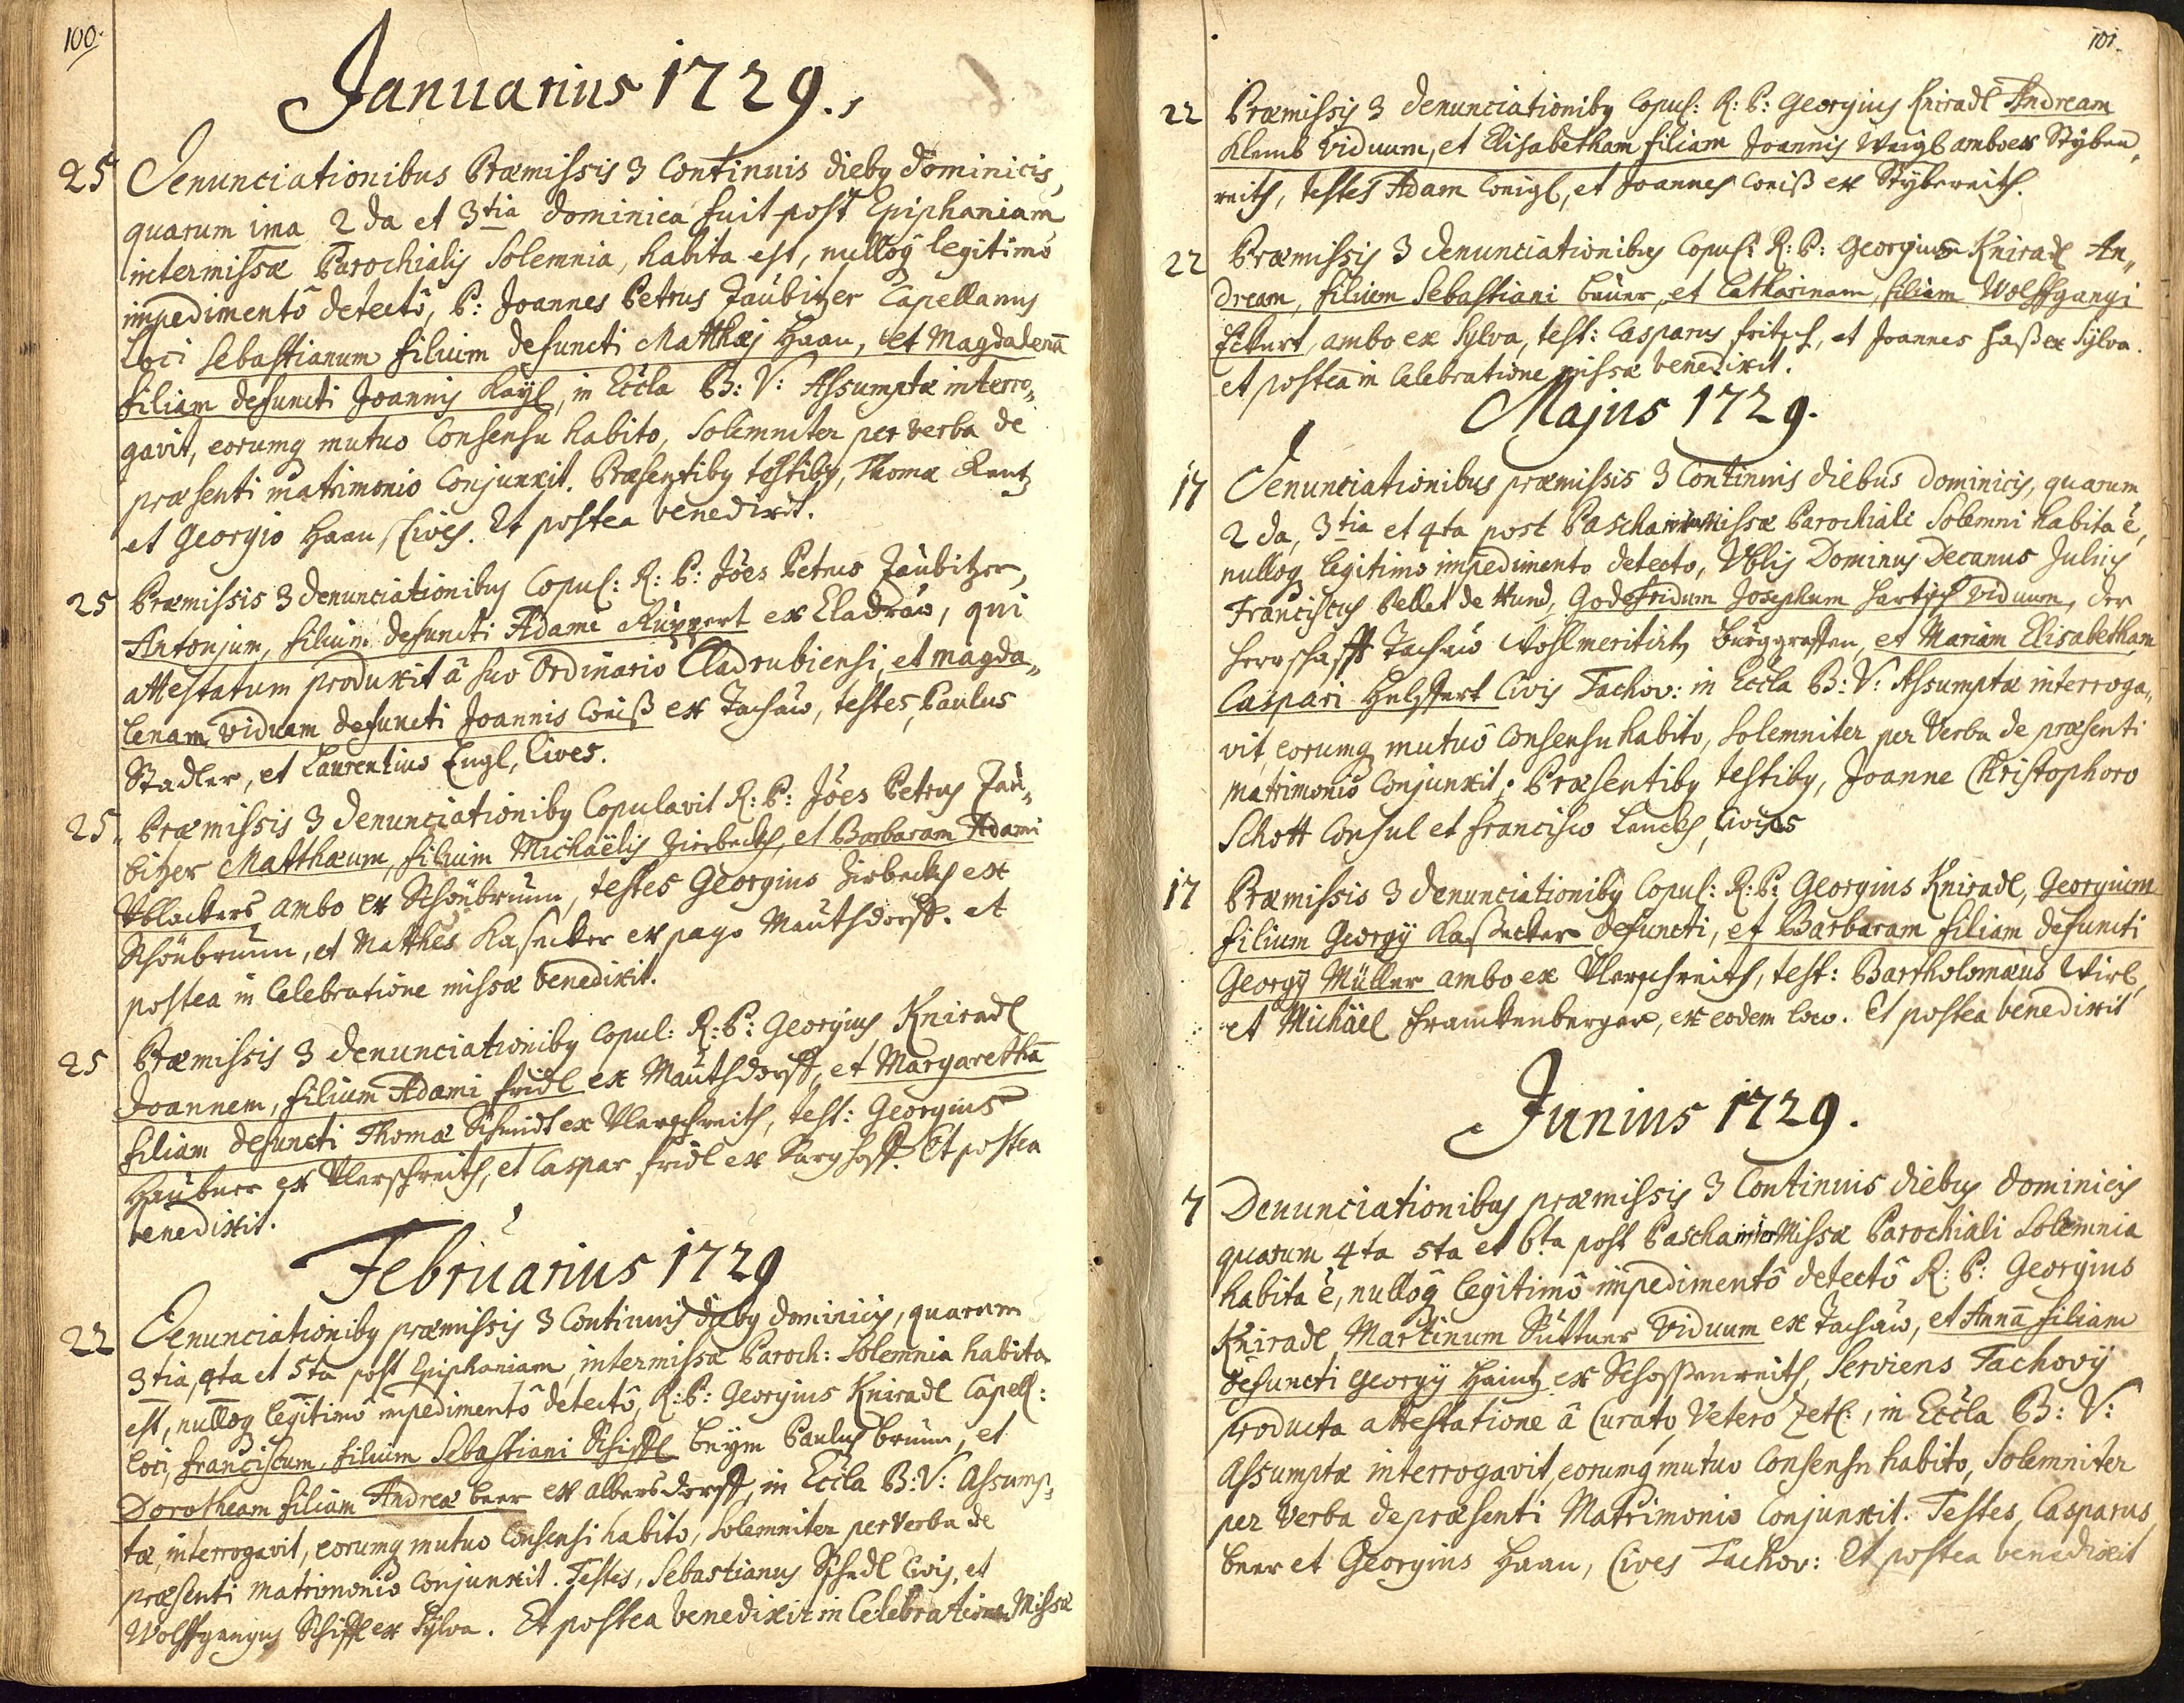 100.
Januarius 1729.
25 Denunciationibus Præmissis 3 Continuis dieby Dominicis,
quarum ima 2da et 3tia Dominica fuit post Epiphaniam
intermissæ Parochialis Solemnia, habita est, nulloq legitimô
impedimentô detectô, P: Joannes Petrus Zaubitzer Capellanus
loci Sebastianum filium defuncti Matthæj Haan, et Magdadenā
filiam defuncti Joannis Kayl, in Eccla B: V: Assumptæ interro„
gavit, eorumq mutuo Consensu habito, Solemniter per verba de
præsenti matrimonio Conjunxit. Præsentiby testiby, Thoma Rentz
et Georgio Haan, Cives. Et postea benedixit.
25 Præmissis 3 denunciationibus Copul: R: P: Jöes Petrus Zaubitzer,
Antonium, filium defuncti Adami Ruppert ex Cladrau, qui
attestatum produxit â suo Ordinario Cladrubiensi, et Magda„
lenam viduam defuncti Joannis Coniß ex Tachau, testes, Paulus
Stadler, et Laurentius Engl, Cives.
25. Præmissis 3 denunciationiby Copulavit R: P: Jöes Petrus Zau„
bitzer Matthæum, filium Michaëlis Zierbeckh, et Barbaram Adami
Ublackers ambo ex Schönbrunn, testes Georgius Zirbeckh ex
Schönbrunn, et Matthes Kasecker ex pago Mauthdorff. et
postea in Celebratione missæ benedixit.
25 Præmissis 3 denunciationiby Copul: R: P: Georgius Kniradl
Joannem, filium Adami fridl ex Mauthdorff, et Margarethā
filiam defuncti Thomæ Schmidt ex Ulerschreith, test: Georgius
Haubner ex Ulerschreith, et Caspar fridl ex Surghoff. Et postea
benedixit.
Februarius 1729
22 Denunciationiby præmissis 3 Continuis dieby dominicis, quarum
3tia, 4ta et 5ta post Epiphaniam, intermissæ Paroch: Solemnia habita
est, nulloq legitimô mpedimentô detectô, R: P: Georgius Kniradl Capell:
loci, franciscum, filium Sebastiani Schiffl beym Paulus brunn, et
Dorotheam filiam Andreæ beer ex albersdorff, in Eccla B: V: Assump„
tæ, interrogavit, eorumq mutuo Consensi habito, Solemniter per Verba de
præsenti matrimonio Conjunxit. Testes, Sebastianus Schedl Civis, et
Wolffgangus Schiffl ex Sylva. Et postea benedixit in Celebratione Missæ
101.
22 Præmissis 3 denunciationiby Copul: R: P: Georgius Kniradl Andream
Klemb viduum, et Elisabetham filiam Joannis Weigl ambo ex Styben„
reith, testes Adam Conigl, et Joannes Coniß ex Stybereith.
22 Præmissis 3 denunciationibus Copul: R: P: Georgius Kniradl An„
dream, filium Sebastiani bauer, et Catharinam, filiam Wolffgangi
Eckert, ambo ex Sylva, test: Casparus fritsch, et Joannes haß ex Sylva.
et postea in Celebratione missæ benedixit.
Majus 1729.
17 Denunciationibus præmissis 3 Continuis diebus dominicis, quarum
2da, 3tia et 4ta post Pascha inter Missæ Parochiali Solemni habita ē,
nulloq legitimo impedimento detecto, Vblis Dominus Decanus Julius
Franciscus Pellet de Hund, Godefridum Josephum hartisch viduum, der
herrschafft Tachau Wohlmeritirtz burggraffen, et Mariam Elisabetham
Caspari Helffert Civis Tachov: in Eccla B: V: Assumptæ interroga„
vit, eorumq mutuô Consensu habito, Solemniter per Verba de præsenti
matrimonio Conjunxit. Præsentiby testiby, Joanne Christophoro
Schott Consul et francisco Lenckh, Cives
17 Præmissis 3 denunciationiby Copul: R: P: Georgius Kniradl, Georgium
filium Georgÿ Kaßecker defuncti, et Barbaram filiam defuncti
Georgÿ Müller ambo ex Ulerschreith, test: Bartholomæus Wirl,
et Michäel franckenberger, ex eodem loco. Et postea benedixit
Junius 1729.
7 Denunciationibus præmissis 3 Continuis diebus dominicis
quarum 4ta 5ta et 6ta post Pascha inter Missæ Parochiali Solemnia
habita ē, nulloq legitimô impedimentô detectô R: P: Georgius
Kniradl Martinum Suttner Viduum ex Tachau, et Annā filiam
defuncti Georgÿ Haintz ex Schossenreith, Serviens Tachovÿ
producta attestatione â Curato Vetero Zetl:, in Eccla B: V:
Assumptæ interrogavit, eorumq mutuo Consensu habito, Solemniter
per Verba de præsenti Matrimonio Conjunxit. Testes, Casparus
beer et Georgius Haan, Cives Tachov: Et postea benedixit